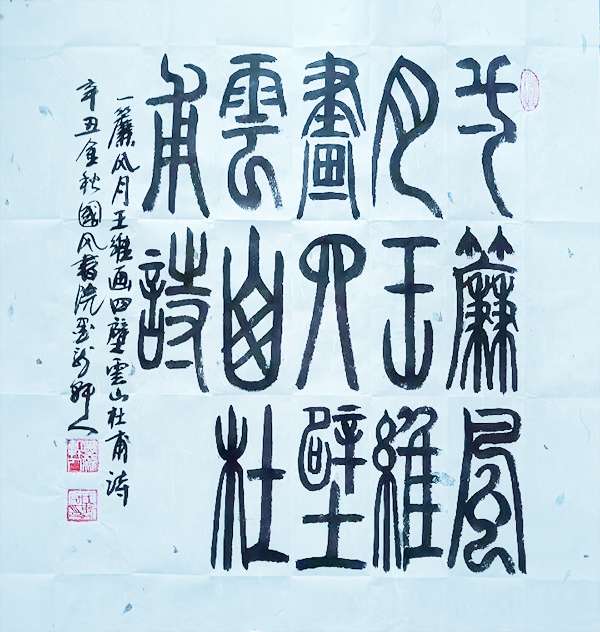 弌簾風
月王維
畫四壁
雲山杜
甫詩
一簾风月王維画四壁雲山杜甫诗
辛丑金秋國风書院